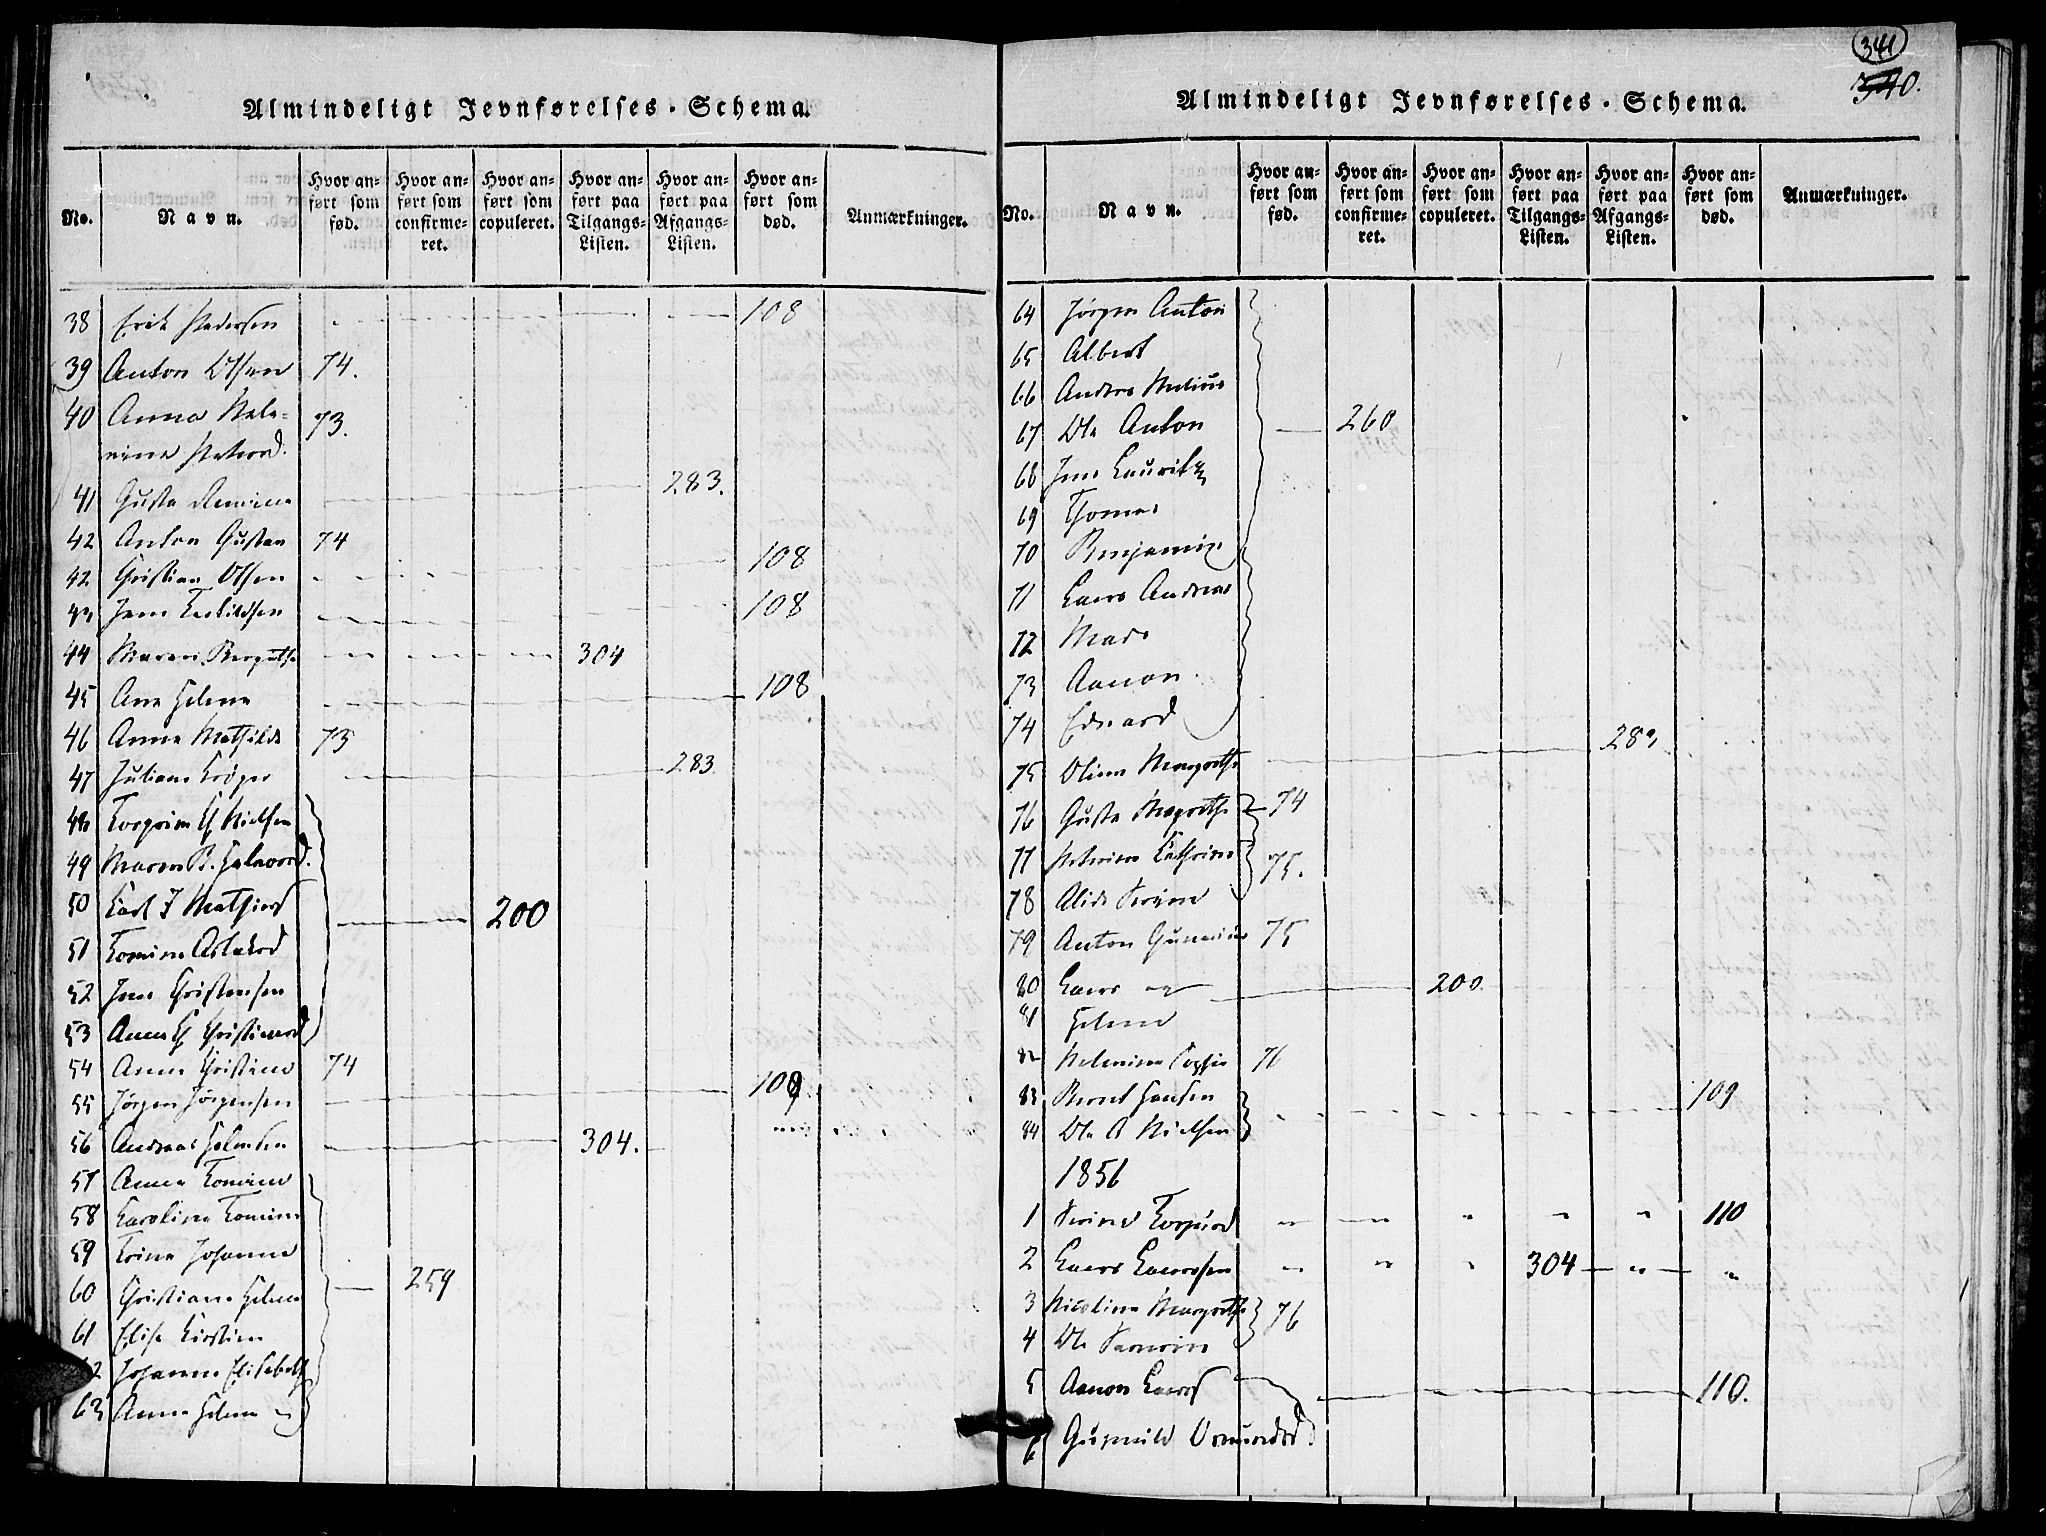 Almindeligt Jevnførelses-Schema.
No.
Navn.
Hvor an-
ført som
fød.
Hvor an-
ført som
confirme-
ret.
Hvor an-
ført som
copuleret.
Hvor an-
ført paa
Tilgangs-
Listen.
Hvor an-
ført paa
Afgangs-
Listen.
Hvor an-
ført som
død.
Anmærkninger.
38 Erik Pedersen 108
39 Anton Olsen 74.
40 Anna 73.
41 Gusta 283.
42 Anton Gustav 74
42 Christian Olsen 108
43 Jens 108
44 Maren 304
45 Ane Helene 108
46 Anna Mathilde 73
47 Juliane 283.
48 Nielsen
49 Maren
50 Carl J Mathies 200
51 Tomine
52 Jens Christensen
53 Anne
54 Anne Christine 74
55 Jørgen Jørgensen 109
56 Andreas 304.
57 Anne Tomine
58 Karoline Tomine
59 Trine Johanne
60 Christiane Helene 259
61 Elise Kirstine
62 Johanne Elisabeth
63 Anne Helene
341
340.
Almindeligt Jevnførelses-Schema.
No.
Navn.
Hvor an-
ført som
fød.
Hvor an-
ført som
confirme-
ret.
Hvor an-
ført som
copuleret.
Hvor an-
ført paa
Tilgangs-
Listen.
Hvor an-
ført paa
Afgangs-
Listen.
Hvor an-
ført som
død.
Anmærkninger.
64 Jørgen Anton
65 Albert
66 Anders
67 Ole Anton 260
68 Jens Lauritz
69 Thomas
70 Benjamin
71 Laers Andreas
72 Mads
73 Aanon
74 Edvard
75 Oline Margrethe 283
76 Gusta Magrethe 74
77 Cathrine 75.
78
79 Anton 75
80 Laers og 200.
81 Helene
82 76
83 Bernt Hansen 109
84 Ole A Nielsen
1856
1 110
2 Laers Laerssen 304
3 Nicoline Margrethe 76
4 Ole
5 Aanon Laers 110.
6